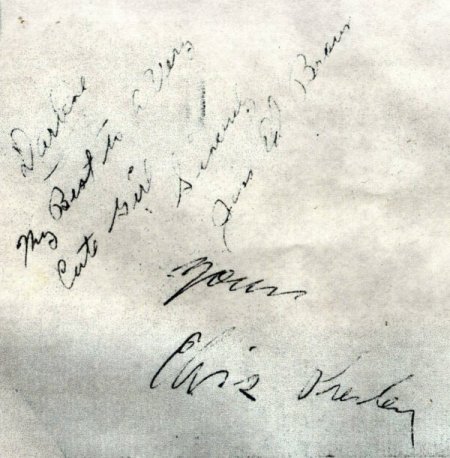 Darlene
My Best to a Very
Cute Girl Sincerely
Jim Ed Brown
Yours
Elvis Presley